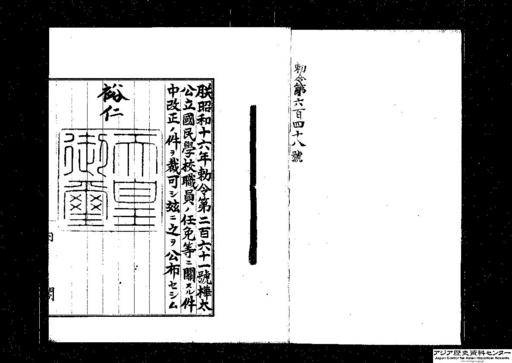 勅令第六百四十八號
朕昭和十六年勅令第二百六十一號樺太
公立國民學校職員ノ任免等ニ關スル件
中改正ノ件ヲ裁可シ玆ニ之ヲ公布セシム
裕仁
天皇
御璽
内
閣
アジア歴史資料センター
Japan Center for Asian Historical Records